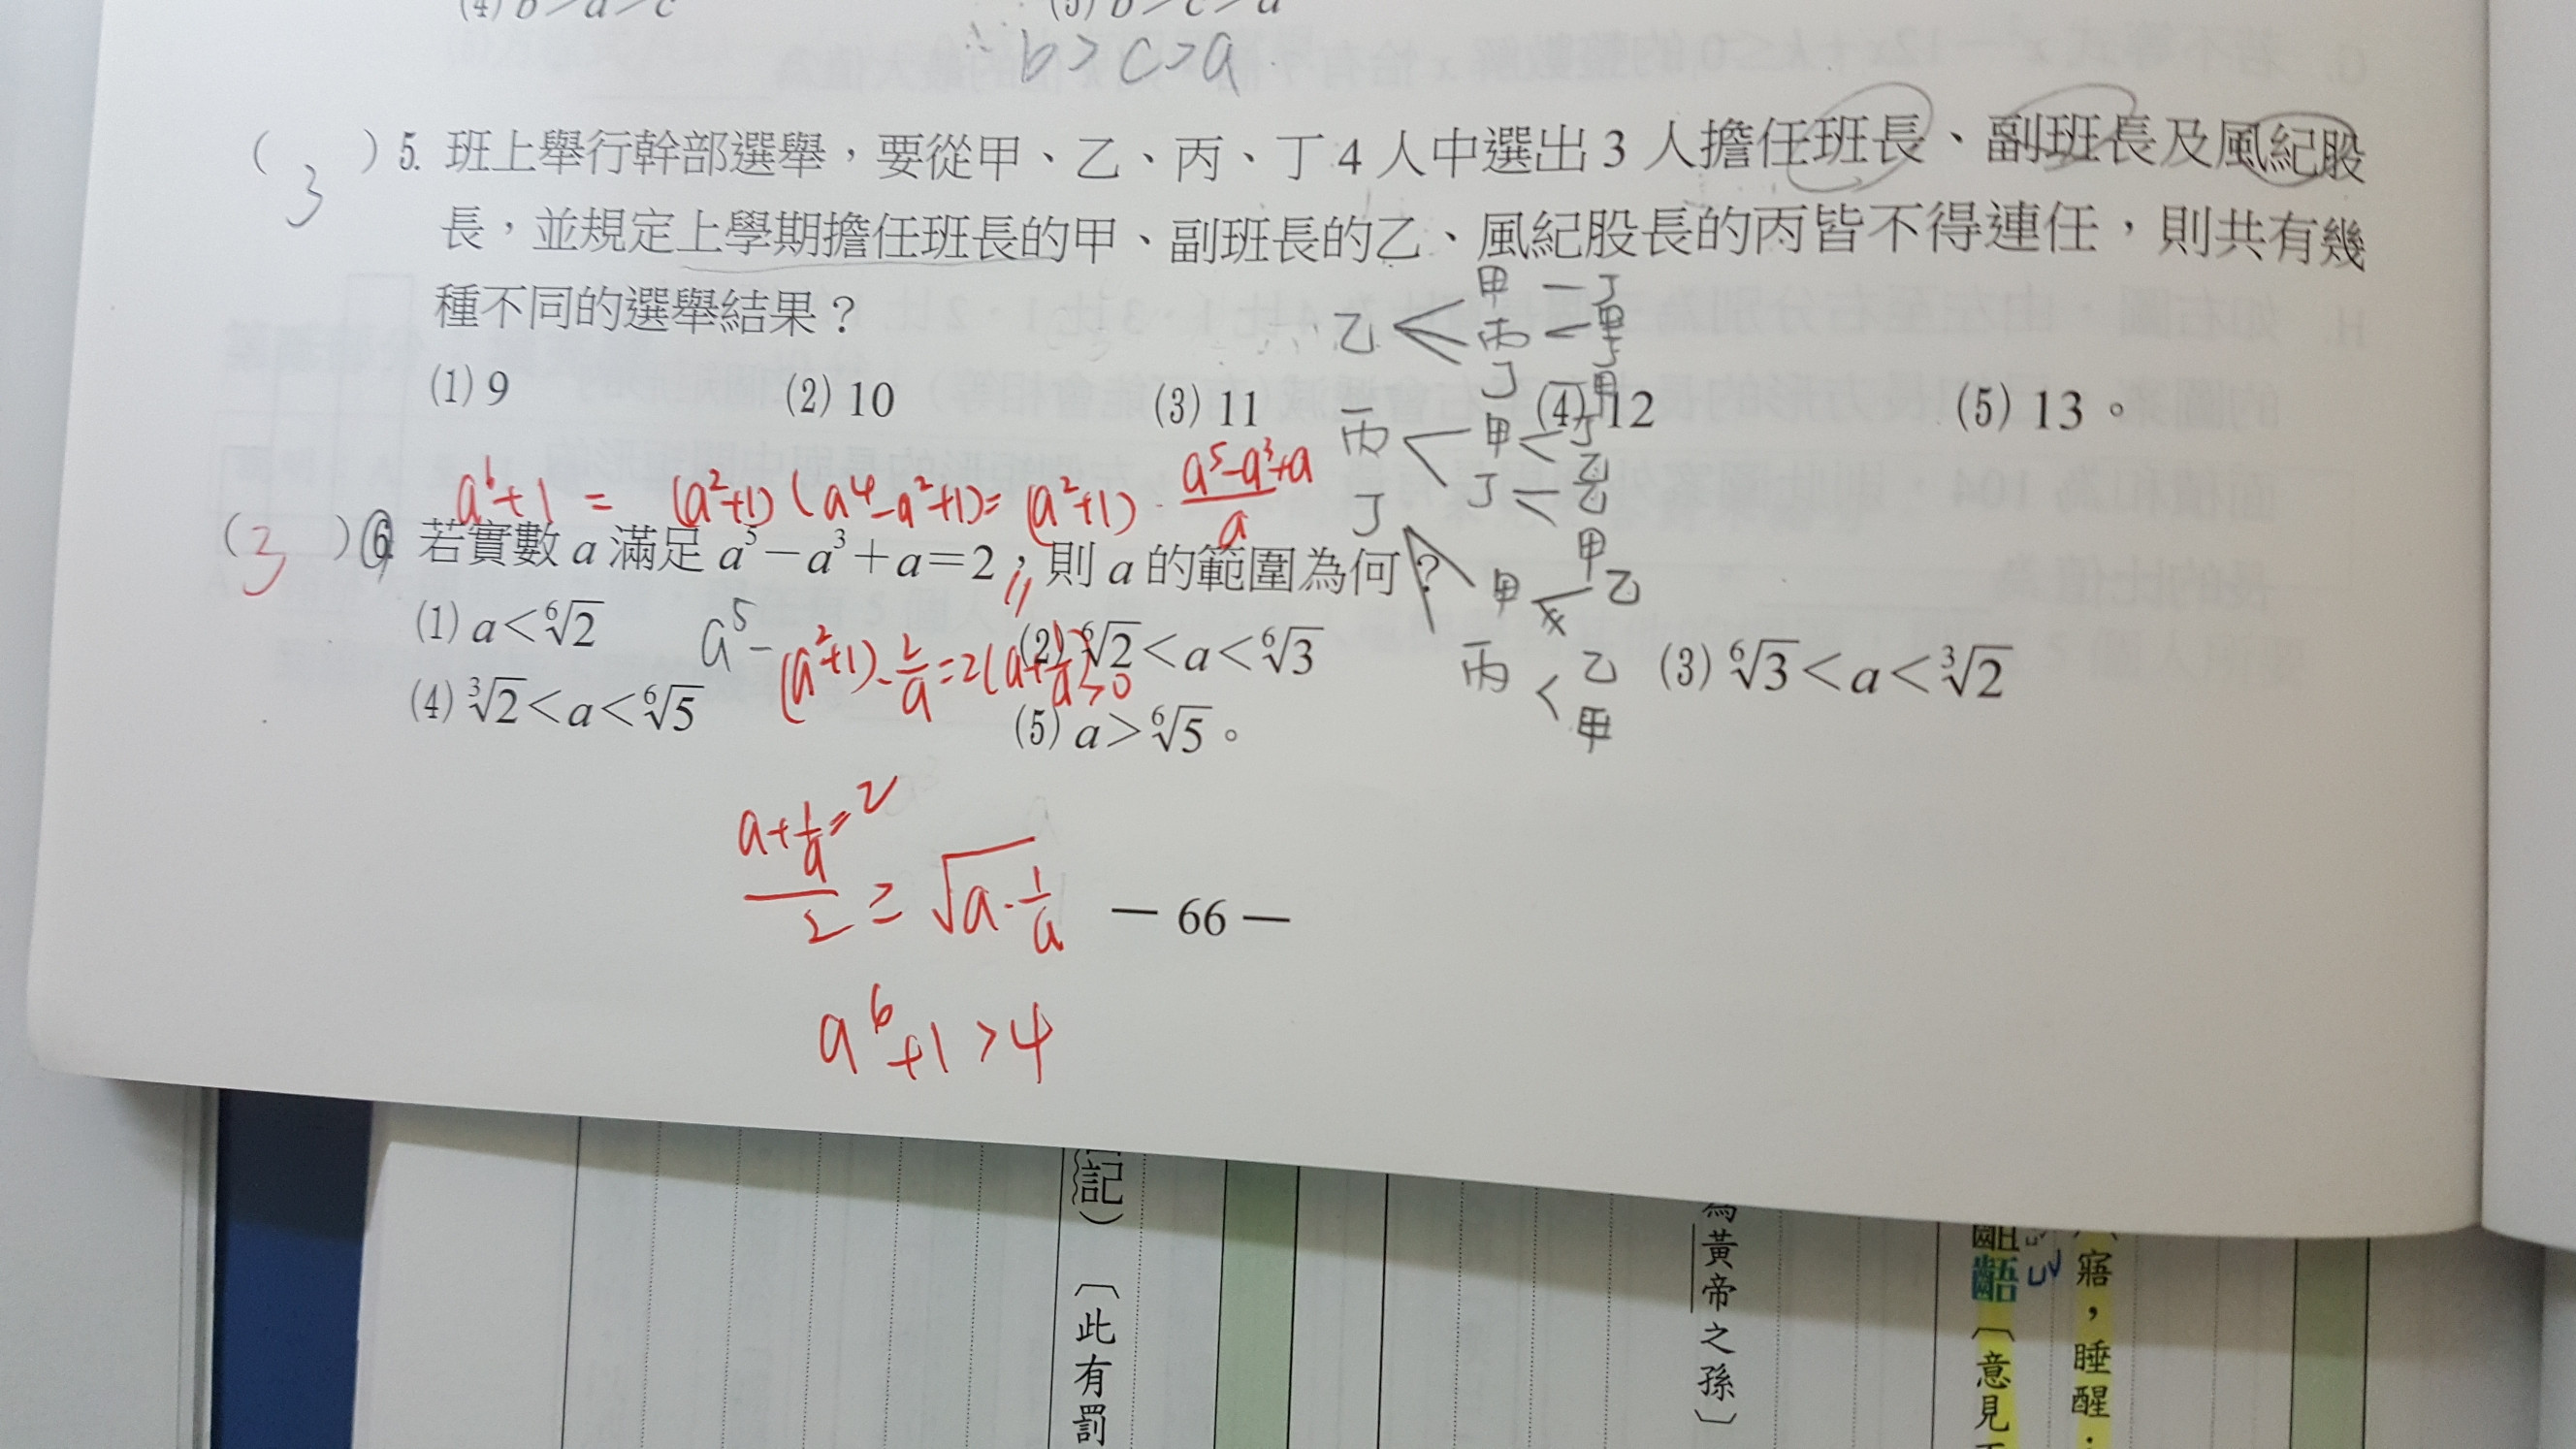 (4) b＞a＞c (5) b＞c＞a
∴ b > c > a
( 3 ) 5. 班上舉行幹部選舉，要從甲、乙、丙、丁 4 人中選出 3 人擔任班長、副班長及風紀股
長，並規定上學期擔任班長的甲、副班長的乙、風紀股長的丙皆不得連任，則共有幾
種不同的選舉結果？
(1) 9 (2) 10 (3) 11 (4) 12 (5) 13。
乙 甲 — 丁
丙 甲 丁
丁 — 甲
丙 甲 丁 乙
丁 乙 甲
丁 甲 乙
丙 乙 甲
a⁶+1 = (a²+1)(a⁴-a²+1) = (a²+1)·(a⁵-a³+a)/a
( 3 ) 6. 若實數 a 滿足 a⁵－a³＋a＝2，則 a 的範圍為何？
(1) a＜⁶√2 (2) ⁶√2＜a＜⁶√3 (3) ⁶√3＜a＜³√2
a⁵-
(a²+1)·2/a = 2(a+1/a) > 0
(4) ³√2＜a＜⁶√5 (5) a＞⁶√5。
a+1/a = 2
/2 ≥ √(a·1/a)
— 66 —
a⁶+1 > 4
記）〔此有罰
為黃帝之孫〕
齟齬〔意見
寤，睡醒